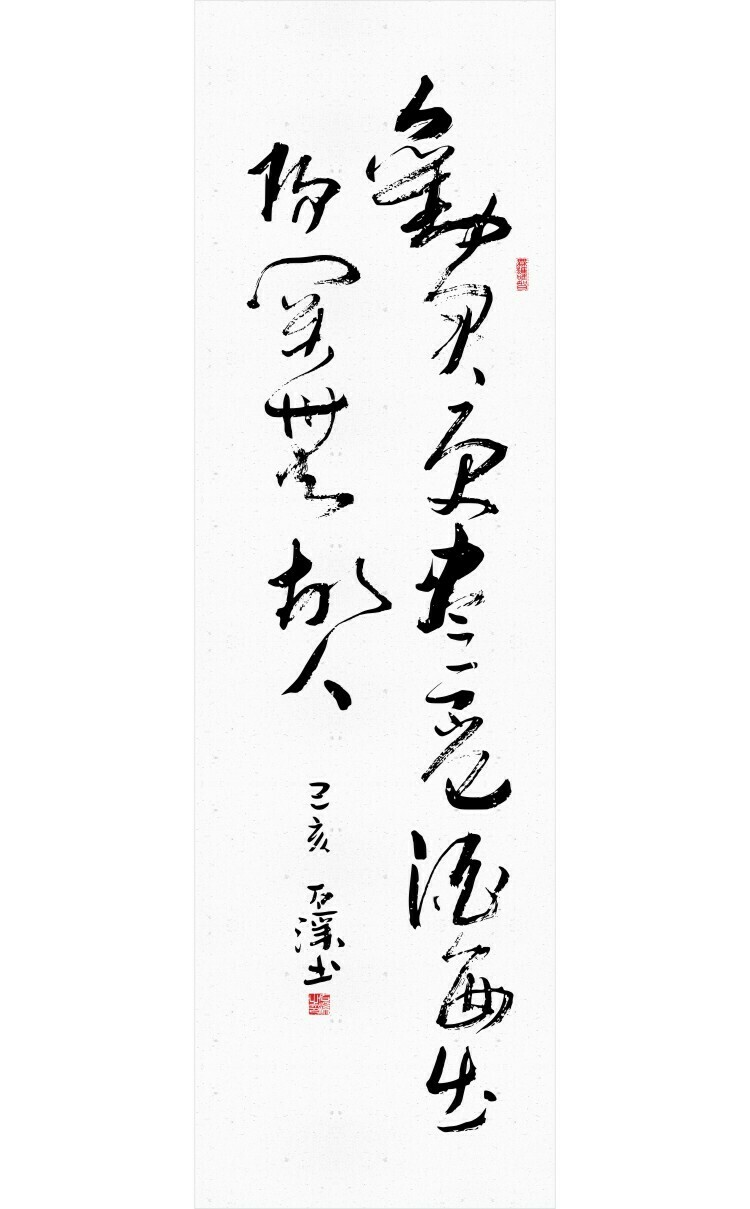 勸君更盡一盃酒西出
陽關無故人
己亥 石溪书